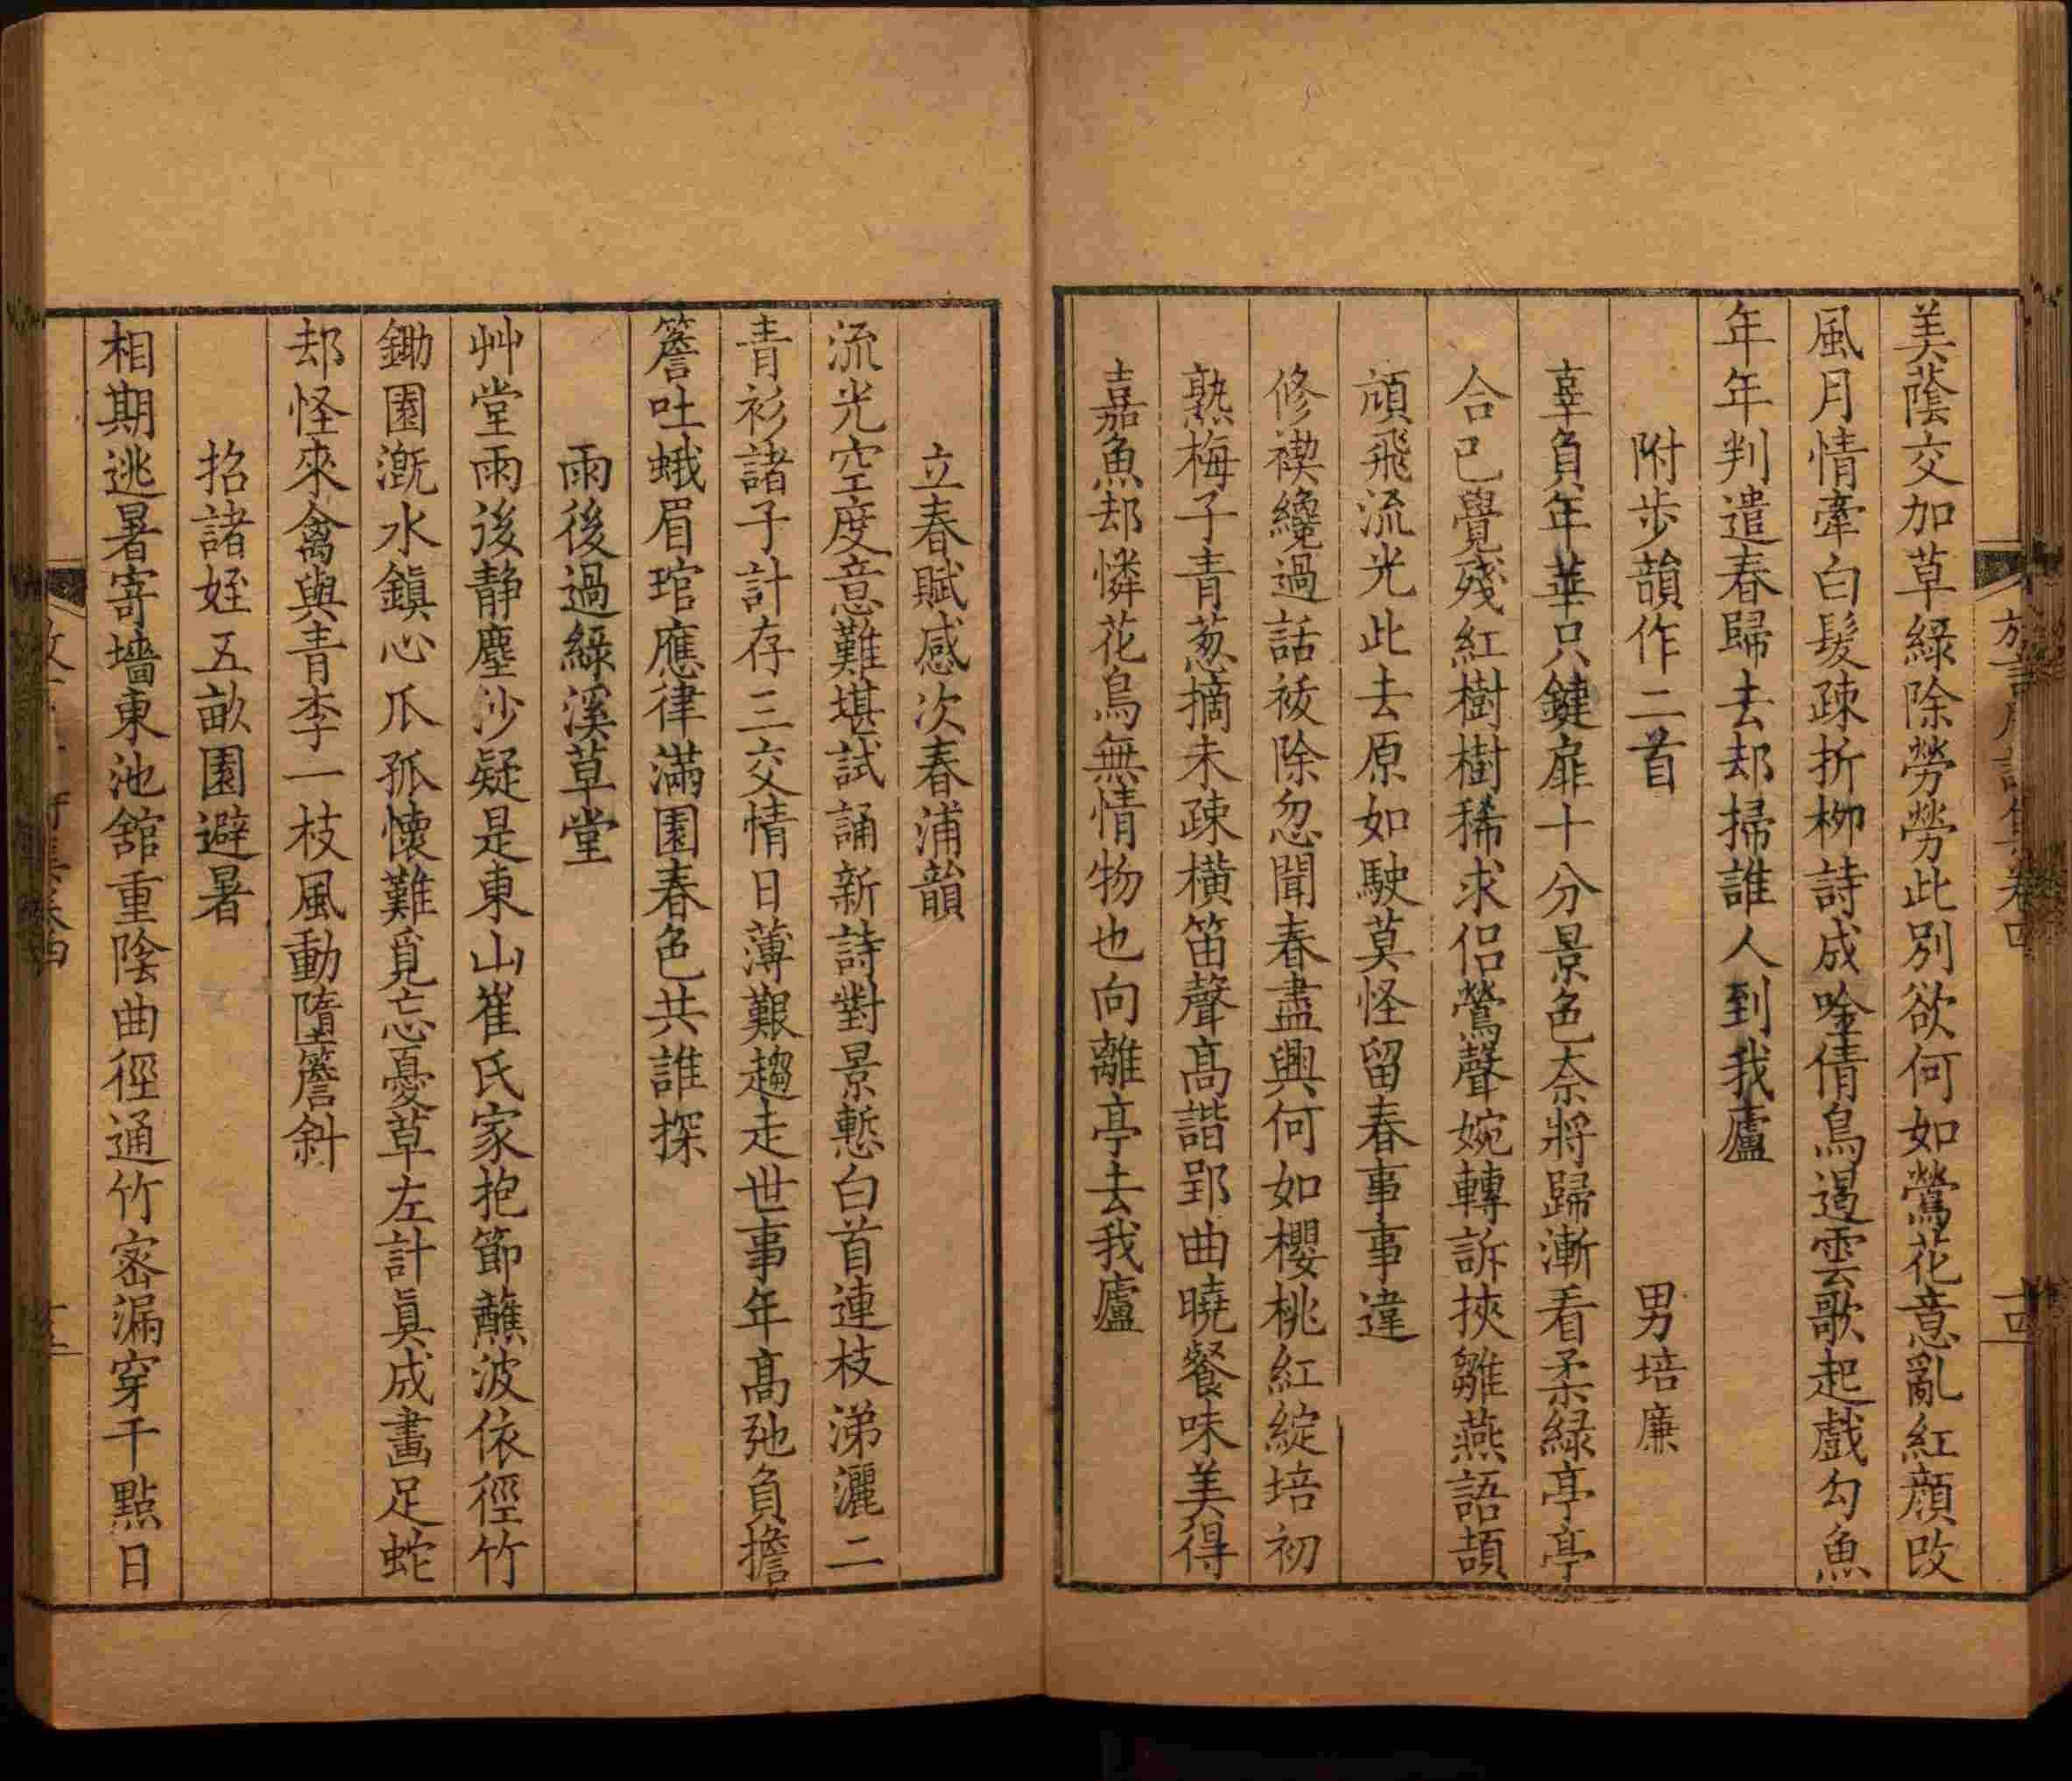 美蔭交加草綠除勞勞此別欲何如鶯花意亂紅顏改
風月情牽白髮疎折栁詩成唫倩鳥遏雲歌起戲勾魚
年年判遣春歸去却掃誰人到我廬
附步韻作二首 男培廉
辜負年華只鍵扉十分景色奈將歸漸看柔綠亭亭
合已覺殘紅樹樹稀求侶鶯聲婉轉訴挾雛燕語頡
頏飛流光此去原如駛莫怪留春事事違
修禊纔過話祓除忽聞春盡興何如櫻桃紅綻培初
熟梅子青葱摘未疎橫笛聲高諧郢曲曉餐味美得
嘉魚却憐花鳥無情物也向離亭去我廬
立春賦感次春浦韻
流光空度意難堪試誦新詩對景慙白首連枝涕灑二
青衫諸子計存三交情日薄艱趨走世事年高弛負擔
簷吐蛾眉琯應律滿園春色共誰探
雨後過綠溪草堂
艸堂雨後静塵沙疑是東山崔氏家抱節蘸波依徑竹
鋤園漑水鎮心瓜孤懷難覓忘憂草左計眞成畵足蛇
却怪來禽與青李一枝風動墮簷斜
招諸姪五畝園避暑
相期逃暑寄墻東池舘重陰曲徑通竹密漏穿千點日